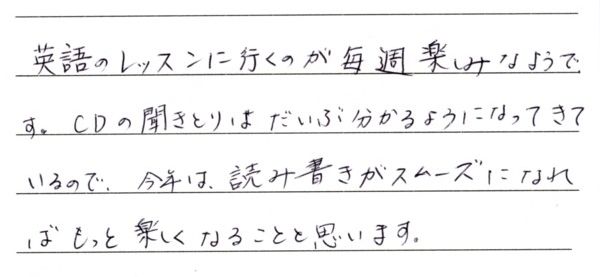 英語のレッスンに行くのが毎週楽しみなようで
す。CDの聞きとりはだいぶ分かるようになってきて
いるので、今年は、読み書きがスムーズになれ
ばもっと楽しくなることと思います。